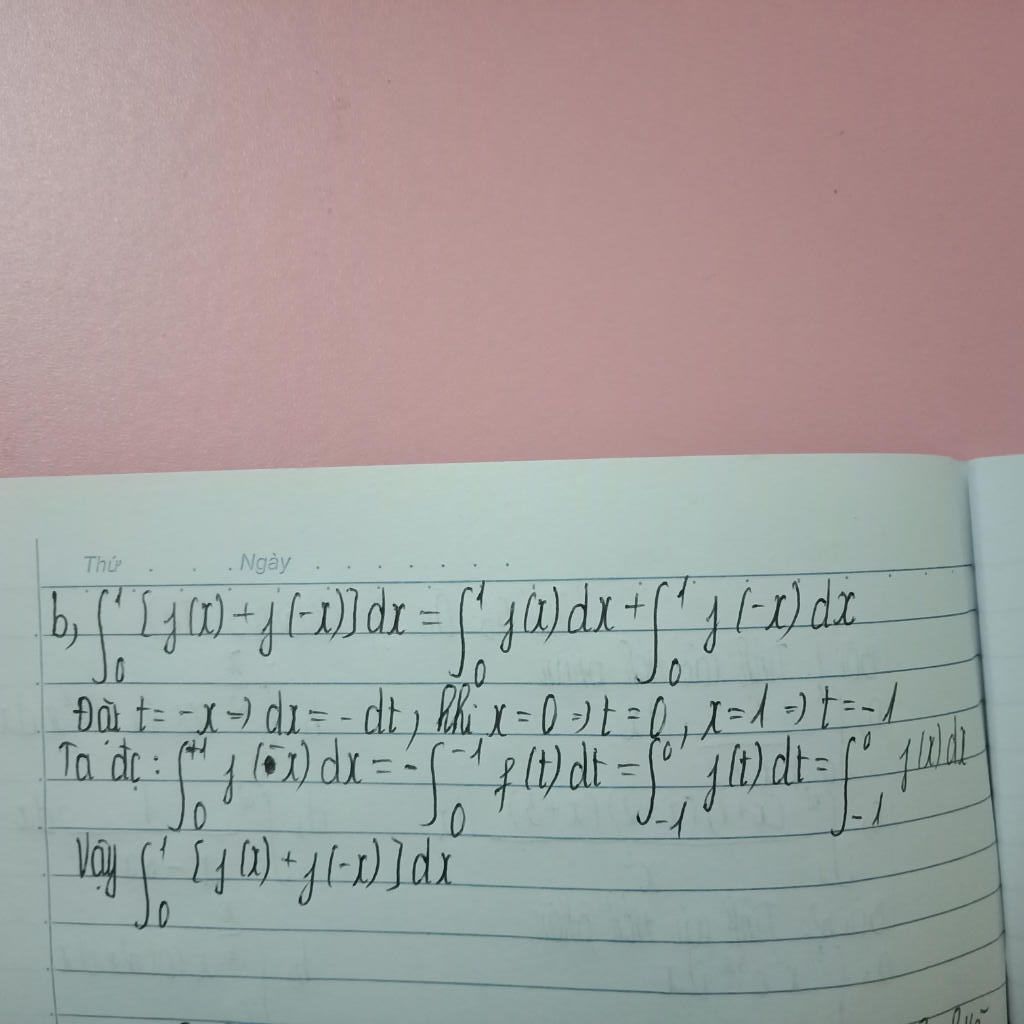 Thứ . . . Ngày . . . . . . .
b, ∫₀¹ [f(x) + f(-x)] dx = ∫₀¹ f(x) dx + ∫₀¹ f(-x) dx
Đặt t = -x ⇒ dx = -dt, khi x = 0 ⇒ t = 0, x = 1 ⇒ t = -1
Ta đc: ∫₀⁺¹ f(-x) dx = -∫₀⁻¹ f(t) dt = ∫₋₁⁰ f(t) dt = ∫₋₁⁰ f(x) dx
Vậy ∫₀¹ [f(x) + f(-x)] dx